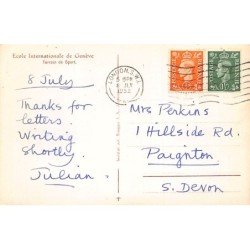 Ecole Internationale de Genève
Terrain de Sport.
8 July
Thanks for
letters.
Writing
Shortly.
Julian.
LONDON. S.W.1
Mrs Perkins
1 Hillside Rd.
Paignton
S. Devon